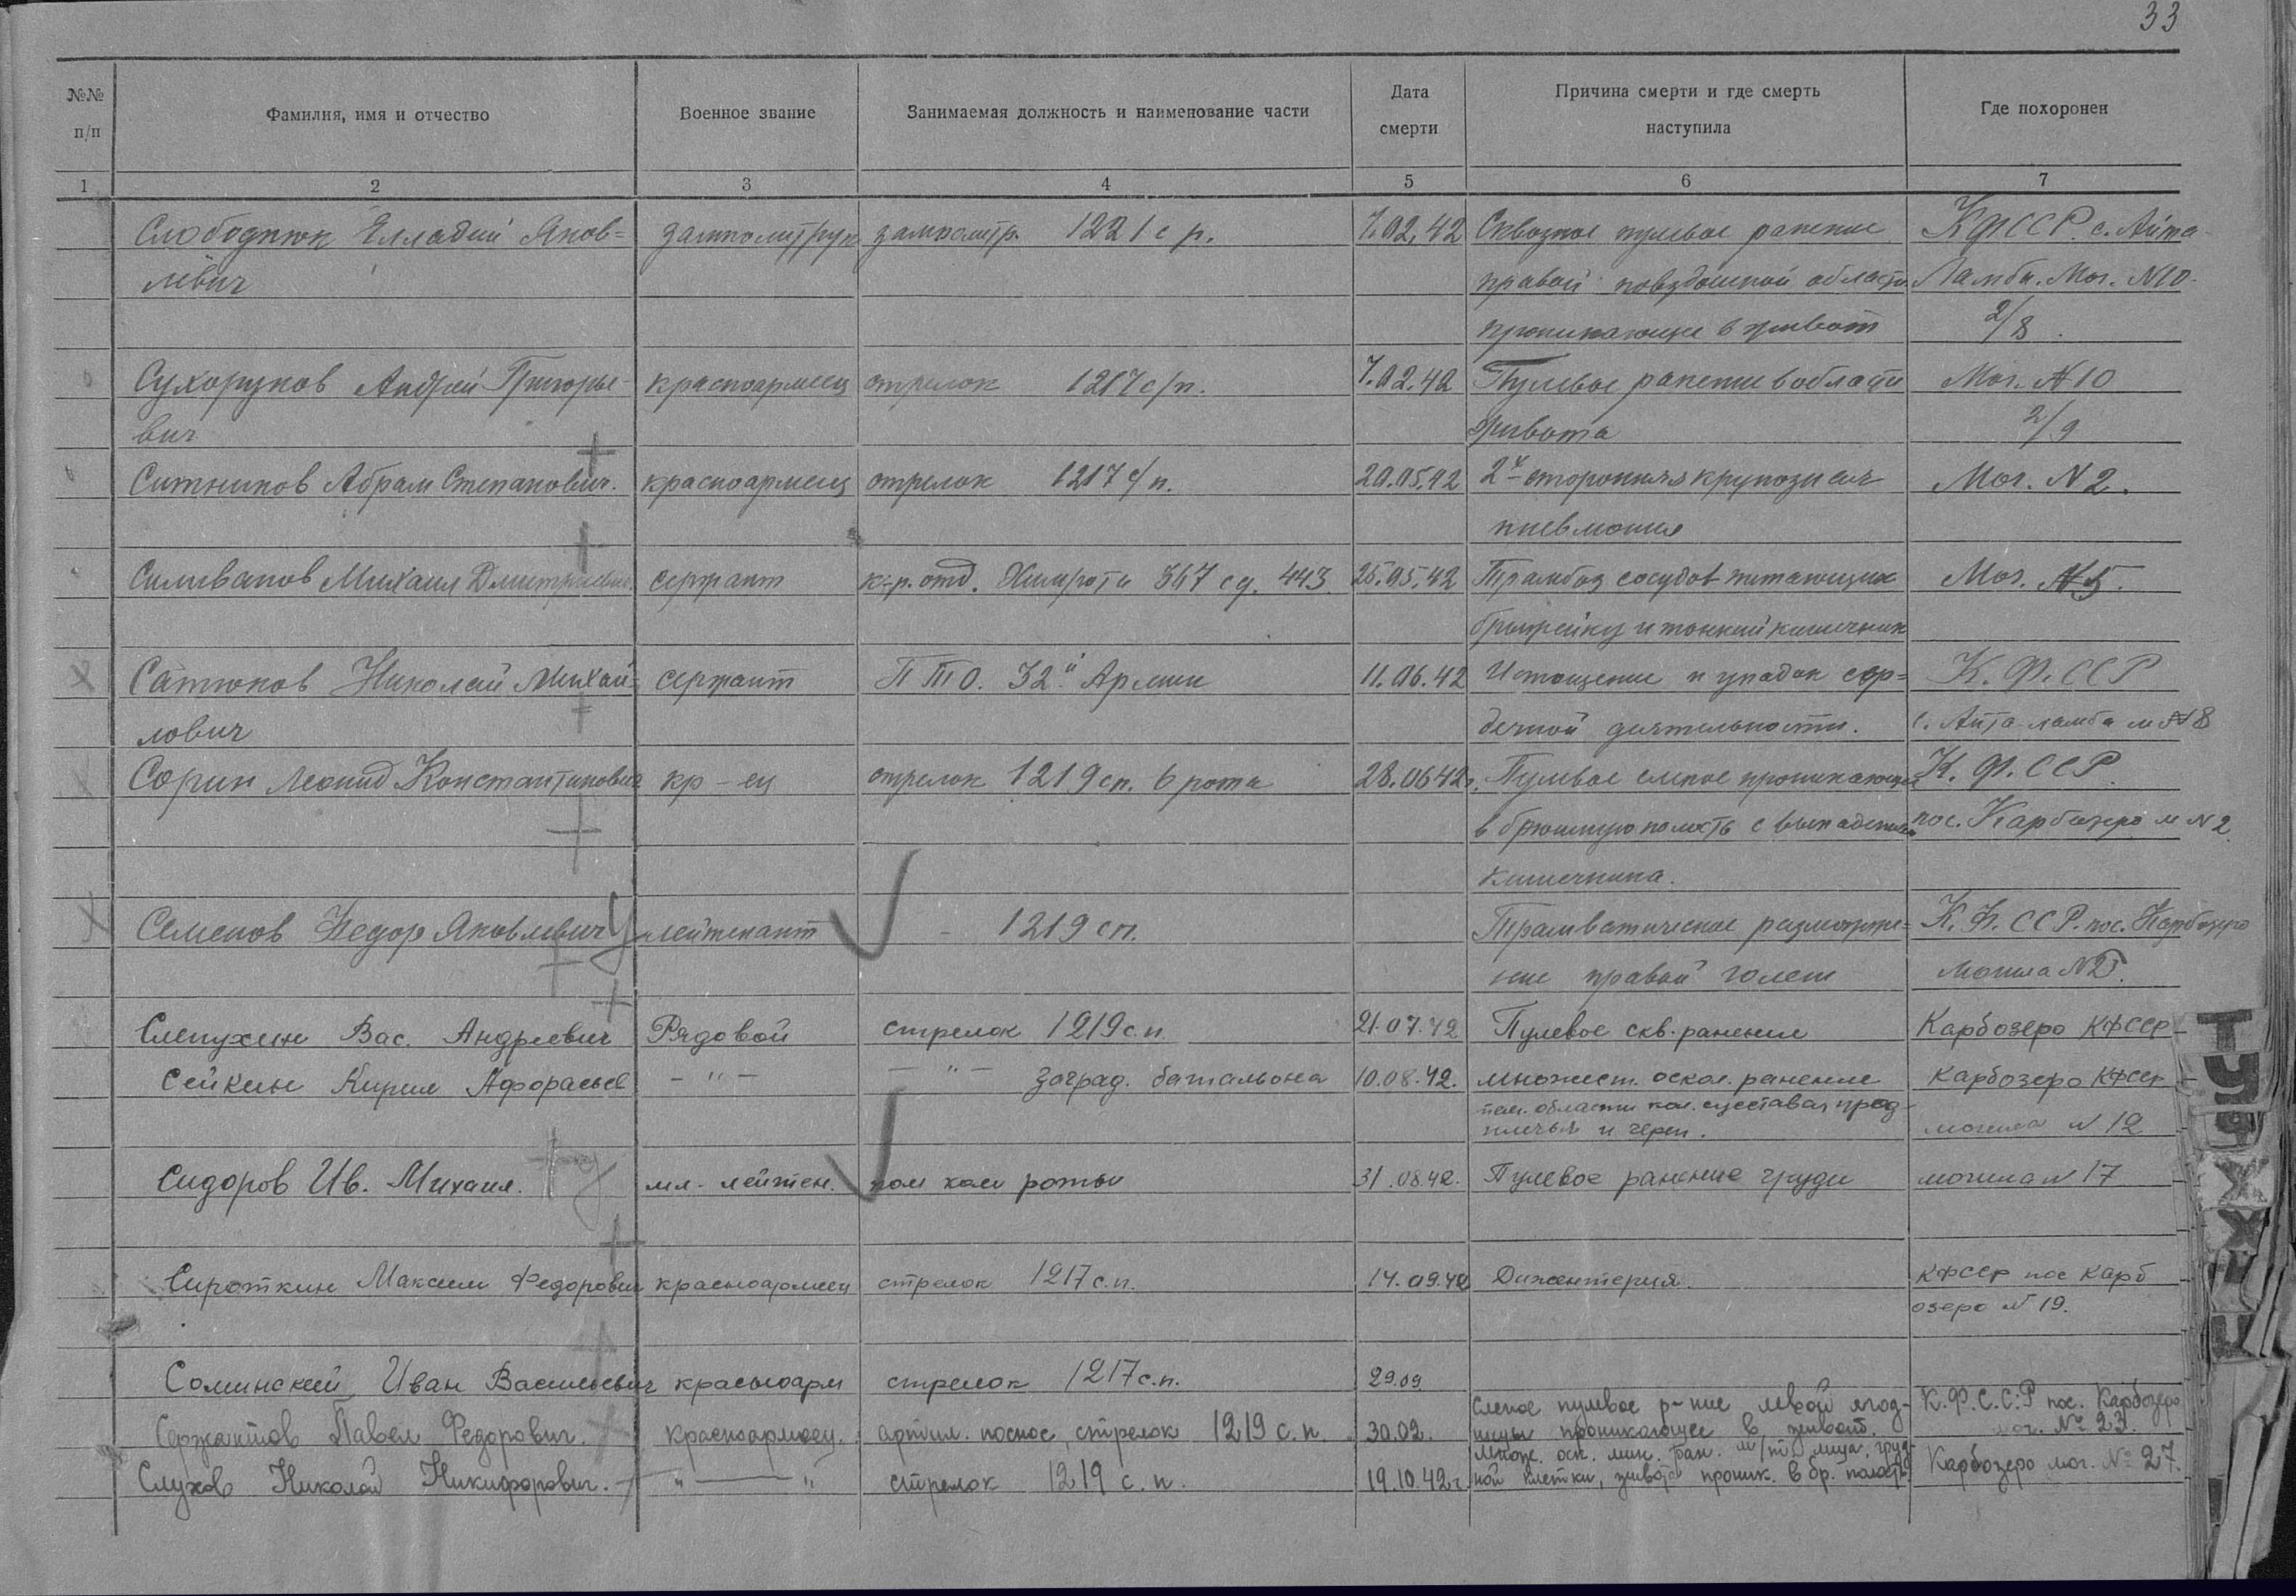 33
№№ п/п
Фамилия, имя и отчество
Военное звание
Занимаемая должность и наименование части
Дата смерти
Причина смерти и где смерть наступила
Где похоронен
1 2 3 4 5 6 7
Слободнюк Елладий Яков= замполитрук замполитр. 1221 с р. 7.02.42 Сквозное пулевое ранение КФССР. с. Айта-
левич правой подвздошной области Ламби. Мог. N10.
проникающее в живот 2/8.
Сухоруков Андрей Григорье- красноармеец стрелок 1217 с/п. 7.02.42 Пулевое ранение в области Мог. N 10
вич живота 2/9
Ситников Абрам Степанович. красноармеец стрелок 1217 с/п. 20.05.42 2х-сторонняя крупозная Мог. N 2.
пневмония
Силиванов Михаил Дмитриевич. сержант к-р. отд. Химроты 367 сд. 443. 25.05.42 Трамбоз сосудов питающих Мог. N5.
брыжейку и тонкий кишечник
Сатюков Николай Михай= сержант ПТО. 32й Армии 11.06.42 Истощение и упадок сер= К. Ф. ССР
лович дечной деятельности. с. Айта-ламба м N8
Сорин Леонид Константинович. кр-ец стрелок 1219 сп. 6 рота 28.06 42г. Пулевое слепое проникающее К. Ф. ССР.
в брюшную полость с выпадением пос. Карбозеро м N 2
кишечника.
Семенов Федор Яковлевич лейтенант - 1219 сп. Трамватическое размозже= К. Ф. ССР. пос. Карбозеро
ние правой голени могила N2.
Слепухин Вас. Андреевич Рядовой стрелок 1219 с.п. 21.07.42 Пулевое скв. ранение Карбозеро КФССР
Сейкин Кирил Афорасьев - " - - " - заград. батальона 10.08.42. множест. оскол. ранение Карбозеро КФССР
области кол. суставов, пред-
плечья и череп. могила N 12
Сидоров Ив. Михаил. мл. лейтен. пом ком роты 31.08.42. Пулевое ранение груди могила N 17
Сироткин Максим Федорович красноармеец стрелок 1217 с.п. 14.09.42 Дизентерия. КФССР пос Карб
озеро N 19.
Соминский Иван Васильевич красноарм стрелок 1217 с.п. 29.09
Слепое пулевое р-ние левой ягод- К.Ф.С.С.Р пос. Карбозеро
Сержантов Павел Федорович. красноармеец. артил. поснос, стрелок 1219 с.п 30.09. ницы проникающее в живот. мог. № 23.
Множ. оск. мин. ран. м/т лица, груд-
Слухов Николай Никифорович. " — " стрелок 1219 с. п. 19.10.42г. ной клетки, живота проник. в бр. полость. Карбозеро мог. № 27.